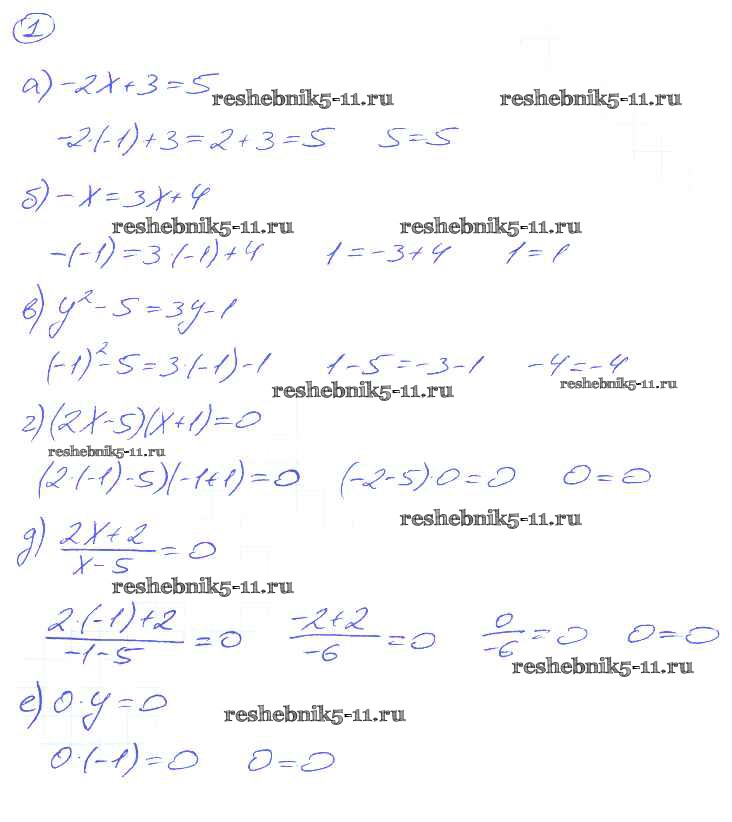 1
а) -2x+3=5
reshebnik5-11.ru reshebnik5-11.ru
-2·(-1)+3=2+3=5 5=5
б) -x=3x+4
reshebnik5-11.ru reshebnik5-11.ru
-(-1)=3·(-1)+4 1=-3+4 1=1
в) y²-5=3y-1
(-1)²-5=3·(-1)-1 1-5=-3-1 -4=-4
reshebnik5-11.ru reshebnik5-11.ru
г) (2x-5)(x+1)=0
reshebnik5-11.ru
(2·(-1)-5)(-1+1)=0 (-2-5)·0=0 0=0
reshebnik5-11.ru
д) (2x+2)/(x-5)=0
reshebnik5-11.ru
(2·(-1)+2)/(-1-5)=0 (-2+2)/(-6)=0 0/(-6)=0 0=0
reshebnik5-11.ru
е) 0·y=0
reshebnik5-11.ru
0·(-1)=0 0=0